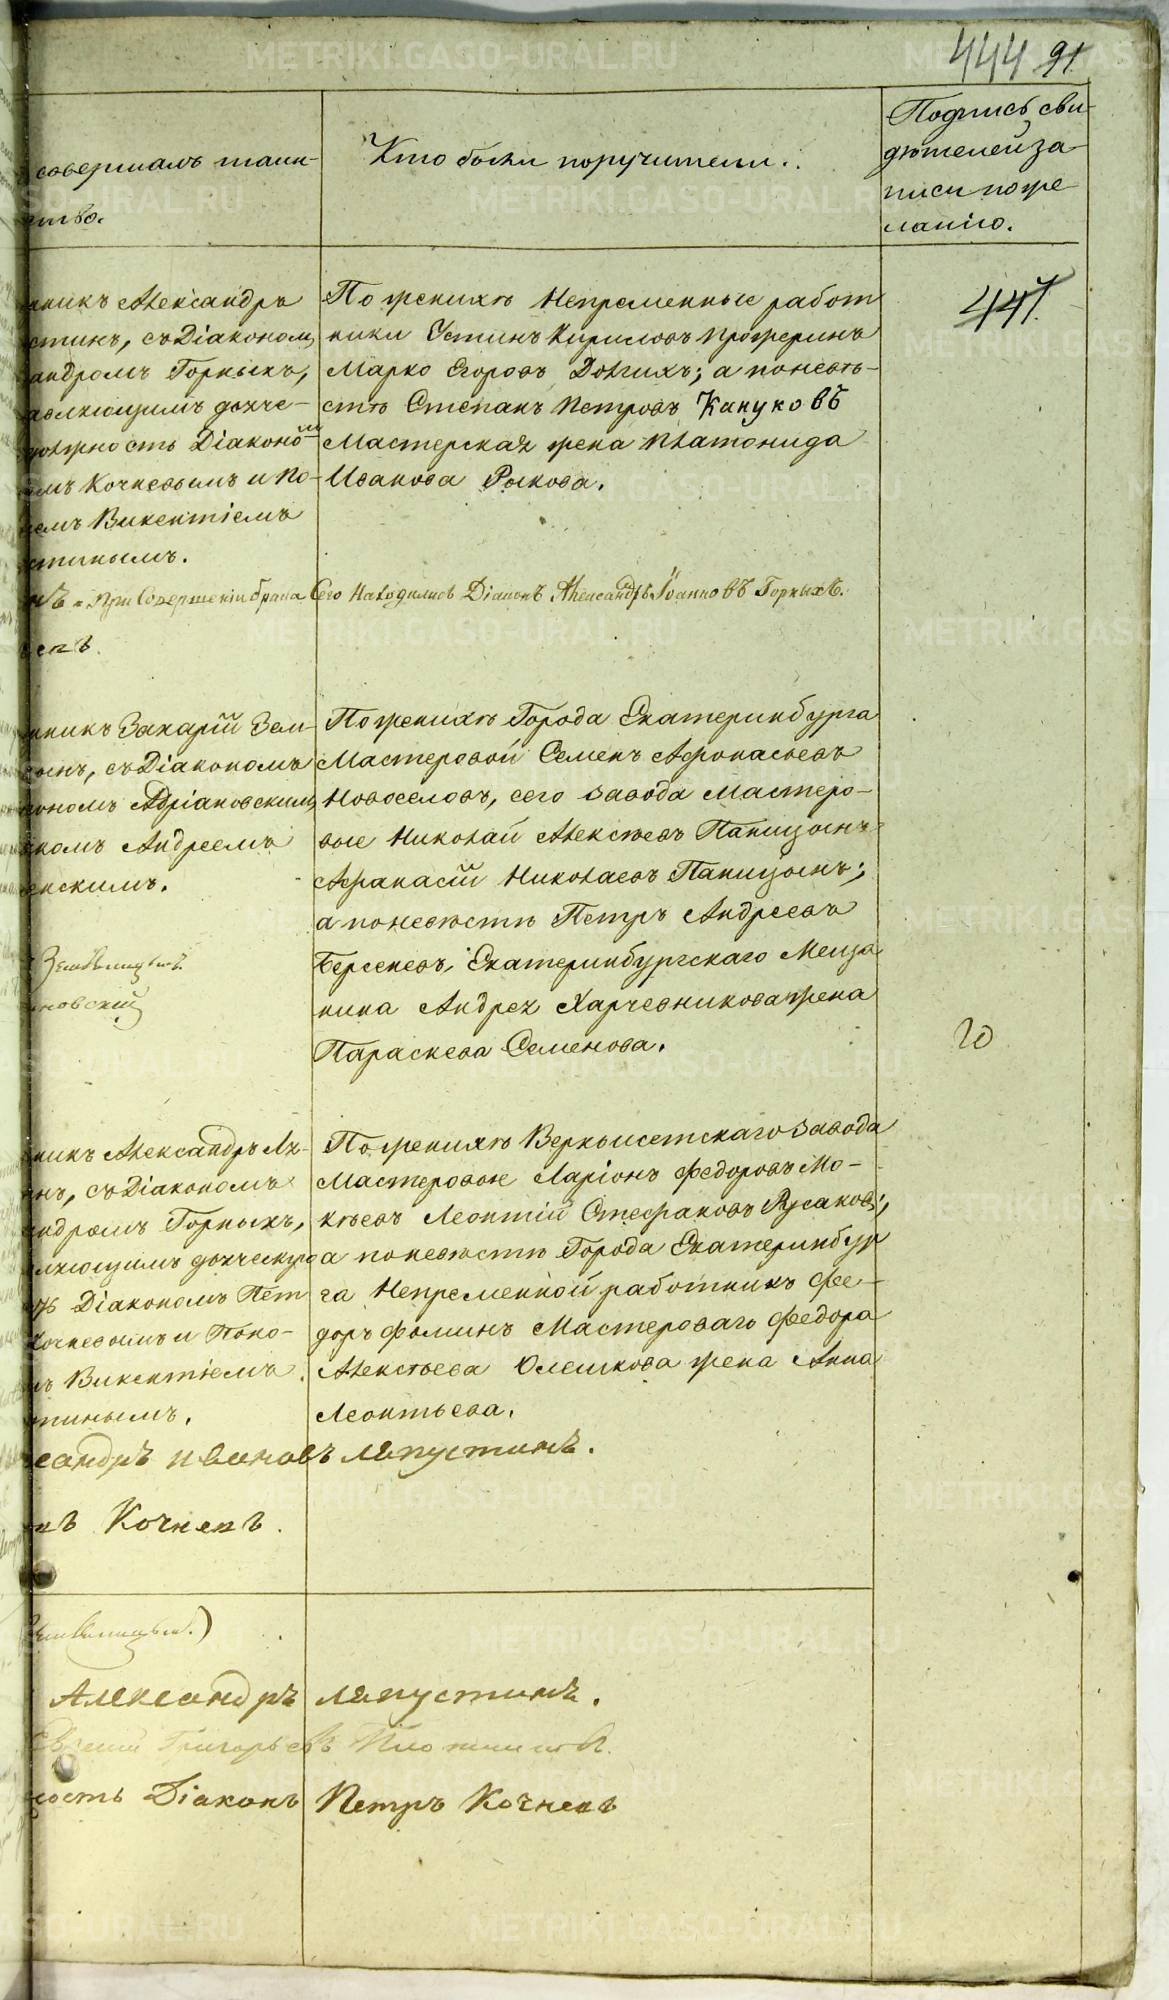 444 91
совершалъ таин-
ство.
Кто были поручители.
Подпись сви-
дѣтелей за-
писи по же
ланію.
никъ Александръ
стинъ, съ Діаконом
андромъ Горныхъ,
авляющимъ дьяче-
должность Діакономъ
омъ Кочневымъ и По-
емъ Викентіемъ
стинымъ.
По женихѣ Непременные работ
ники Устинъ Кириловъ Прожеринъ
Марко Егоровъ Долгихъ; а по невѣ-
стѣ Степанъ Петровъ Кануковъ
Мастерская жена Платонида
Иванова Рыкова.
447.
при Совершеніи брака Сего Находились Діаконъ Александръ Іоанновъ Горныхъ.
никъ Захарій Зем-
цынъ, съ Діакономъ
ономъ Адріановским,
комъ Андреемъ
енскимъ.
новскій
По женихѣ Города Екатеринбурга
Мастеровой Семенъ Афонасьевъ
Новоселовъ, сего завода мастеро-
вые Николай Алексѣевъ Паницынъ
Афанасій Николаевъ Паницынъ;
а по невѣстѣ Петръ Андреевъ
Берсеневъ, Екатеринбургскаго Меща
нина Андрея Харчевникова жена
Параскева Семенова.
20
никъ Александръ Ля-
нъ, съ Діакономъ
ндромъ Горныхъ,
вляющимъ дьяческую
Діакономъ Пет
Кочневымъ и Поно-
мъ Викентіемъ
стинымъ.
По женихѣ Верхъисетскаго завода
Мастеровые Ларіонъ Федоровъ Мо-
кѣевъ Леонтій Стефановъ Русаковъ;
а по невѣстѣ Города Екатеринбур
га Непременной работникъ Фе-
доръ Фоминъ Мастероваго Федора
Алексѣева Олешкова жена Анна
Леонтьева.
сандръ Ивановъ Ляпустинъ.
нъ Кочневъ.
Александръ Ляпустинъ.
Евгеній Григорьевъ Плотниковъ.
ность Діаконъ Петръ Кочневъ